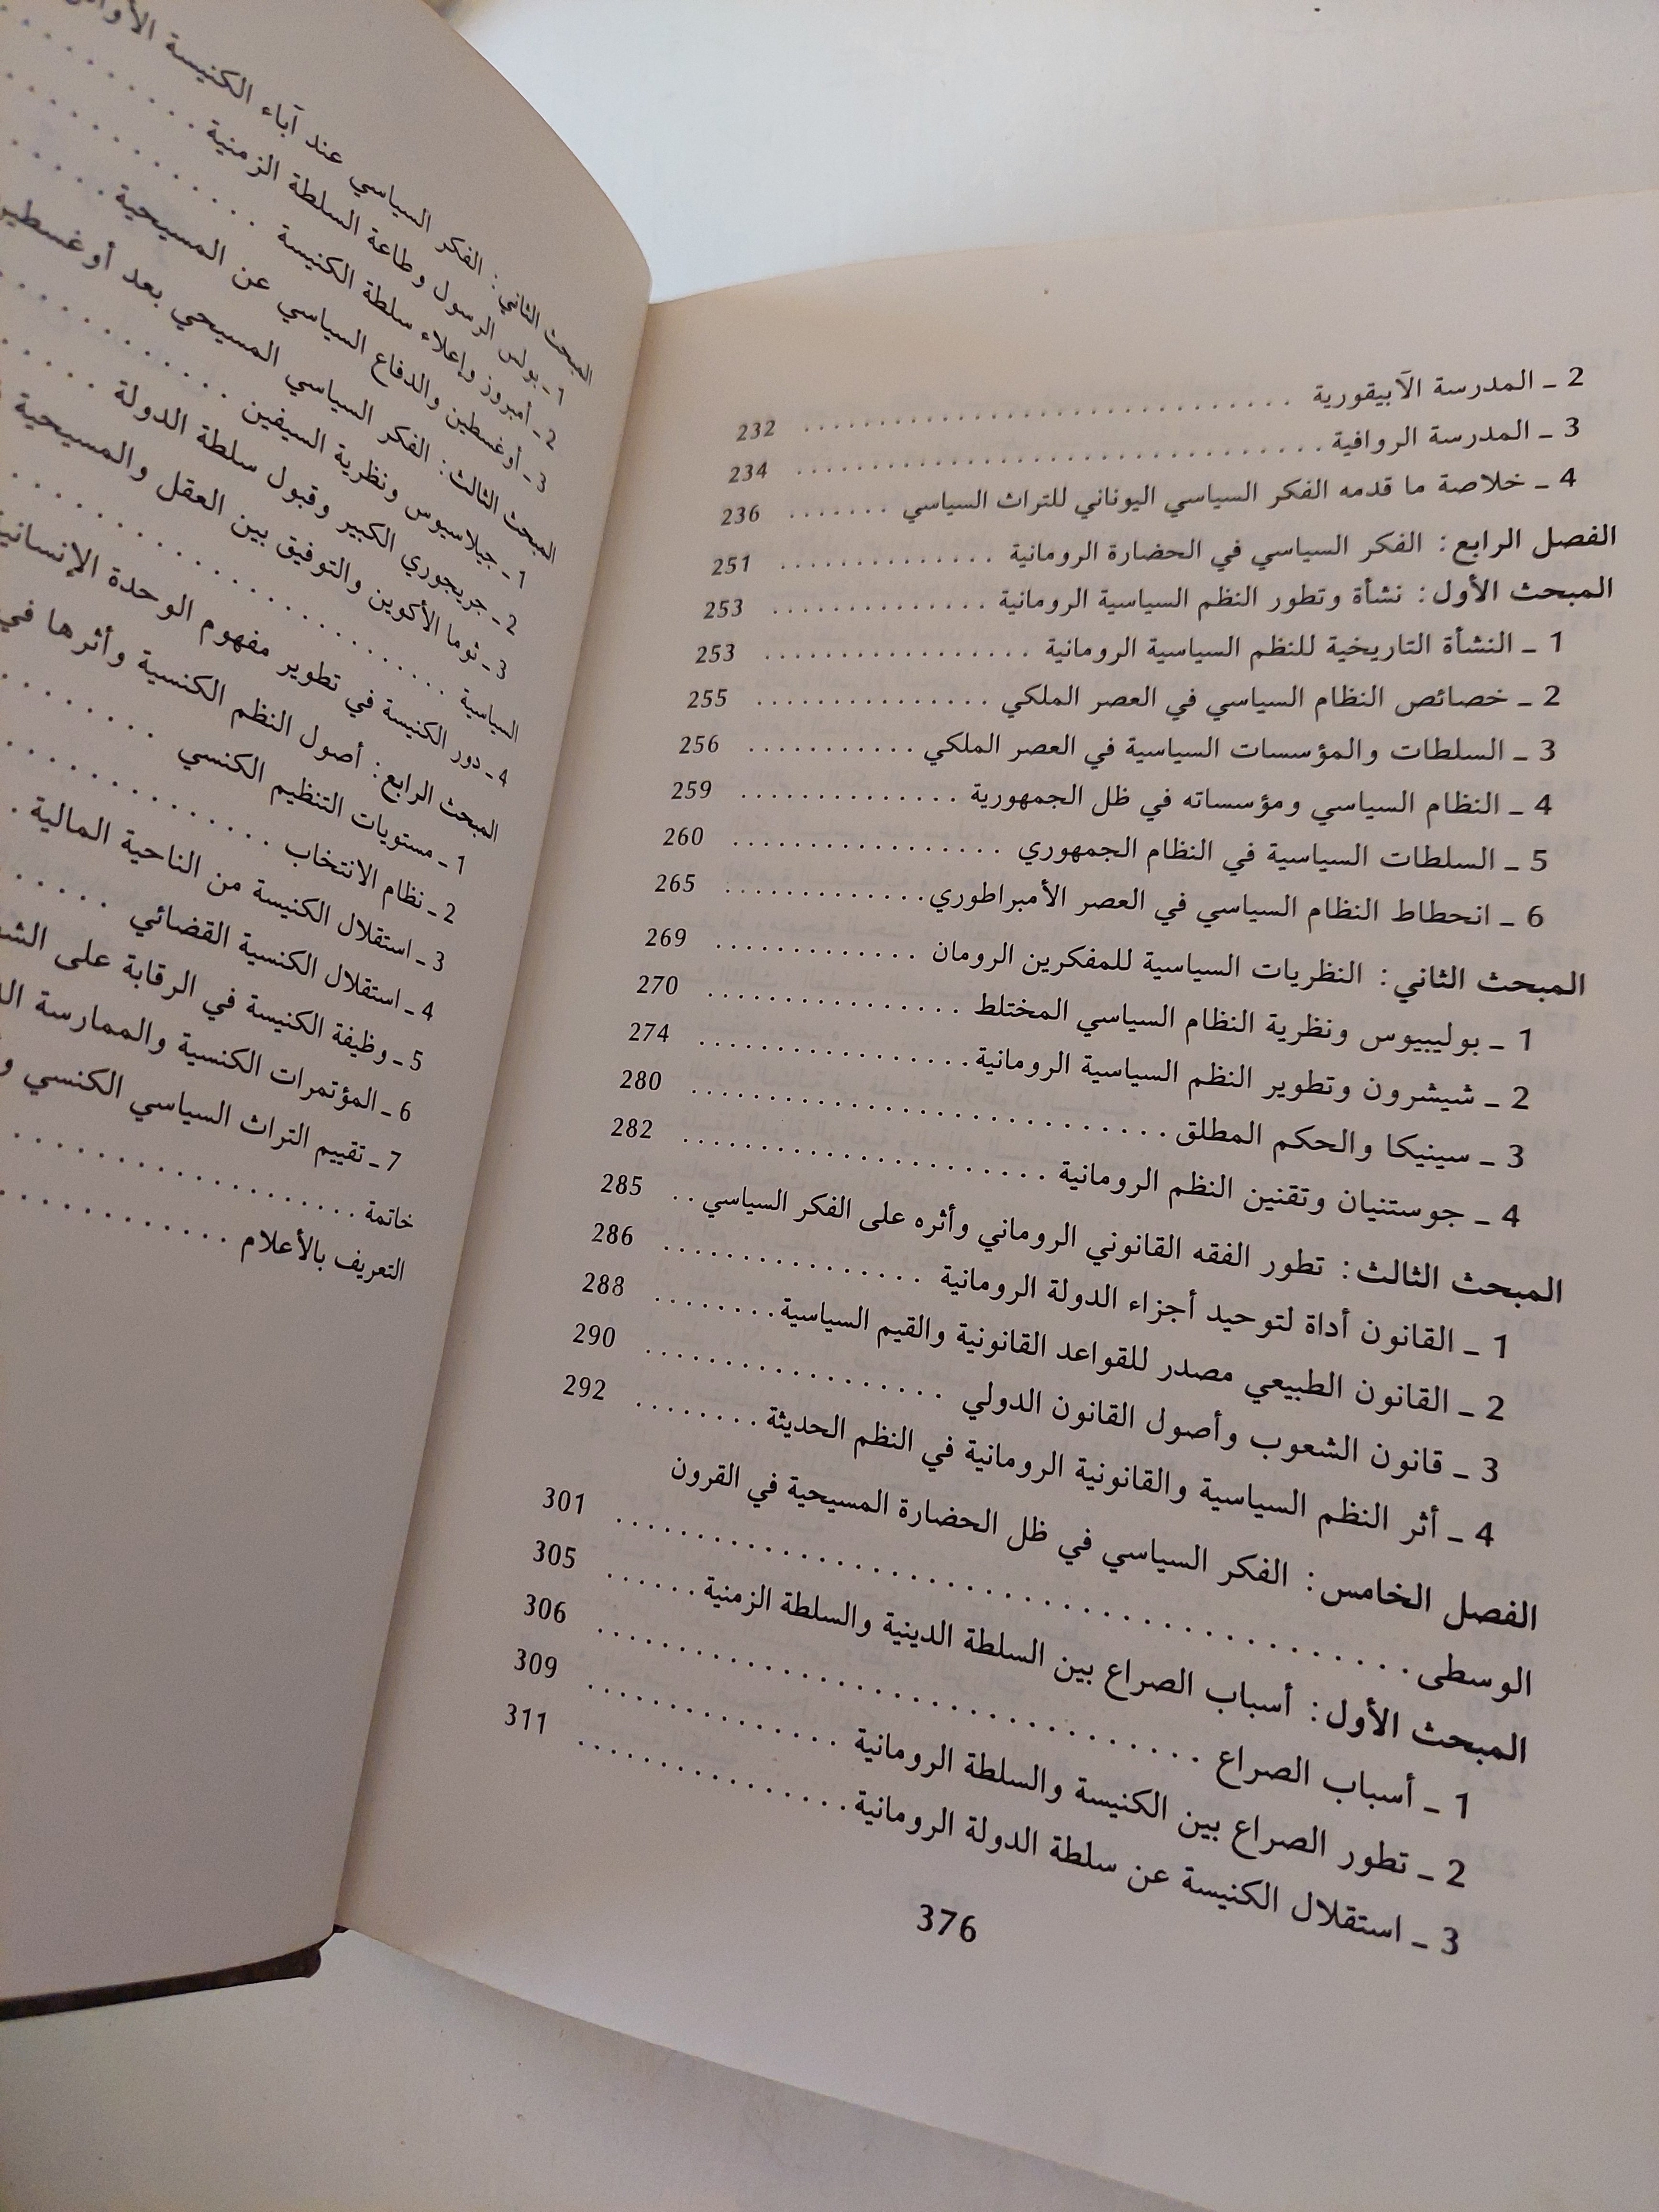 2 ـ المدرسة الآبيقورية . . . . . . . . . . . . . . . . . . . . . . . . . . . . . 232
3 ـ المدرسة الروافية . . . . . . . . . . . . . . . . . . . . . . . . . . . . . . . 234
4 ـ خلاصة ما قدمه الفكر السياسي اليوناني للتراث السياسي . . . . . . . 236
الفصل الرابع: الفكر السياسي في الحضارة الرومانية . . . . . . . . . . . . . . 251
المبحث الأول: نشأة وتطور النظم السياسية الرومانية . . . . . . . . . . . . . . 253
1 ـ النشأة التاريخية للنظم السياسية الرومانية . . . . . . . . . . . . . . . . . 253
2 ـ خصائص النظام السياسي في العصر الملكي . . . . . . . . . . . . . . . 255
3 ـ السلطات والمؤسسات السياسية في العصر الملكي . . . . . . . . . . . 256
4 ـ النظام السياسي ومؤسساته في ظل الجمهورية . . . . . . . . . . . . . . 259
5 ـ السلطات السياسية في النظام الجمهوري . . . . . . . . . . . . . . . . . 260
6 ـ انحطاط النظام السياسي في العصر الأمبراطوري . . . . . . . . . . . . . 265
المبحث الثاني: النظريات السياسية للمفكرين الرومان . . . . . . . . . . . . . 269
1 ـ بوليبيوس ونظرية النظام السياسي المختلط . . . . . . . . . . . . . . . . 270
2 ـ شيشرون وتطوير النظم السياسية الرومانية . . . . . . . . . . . . . . . . . 274
3 ـ سينيكا والحكم المطلق . . . . . . . . . . . . . . . . . . . . . . . . . . . . . 280
4 ـ جوستنيان وتقنين النظم الرومانية . . . . . . . . . . . . . . . . . . . . . . . 282
المبحث الثالث: تطور الفقه القانوني الروماني وأثره على الفكر السياسي . . 285
1 ـ القانون أداة لتوحيد أجزاء الدولة الرومانية . . . . . . . . . . . . . . . . . 286
2 ـ القانون الطبيعي مصدر للقواعد القانونية والقيم السياسية . . . . . . . . 288
3 ـ قانون الشعوب وأصول القانون الدولي . . . . . . . . . . . . . . . . . . . 290
4 ـ أثر النظم السياسية والقانونية الرومانية في النظم الحديثة . . . . . . . . 292
الفصل الخامس: الفكر السياسي في ظل الحضارة المسيحية في القرون
الوسطى . . . . . . . . . . . . . . . . . . . . . . . . . . . . . . . . . . . . . . . . . 301
المبحث الأول: أسباب الصراع بين السلطة الدينية والسلطة الزمنية . . . . . . 305
1 ـ أسباب الصراع . . . . . . . . . . . . . . . . . . . . . . . . . . . . . . . . . . 306
2 ـ تطور الصراع بين الكنيسة والسلطة الرومانية . . . . . . . . . . . . . . . 309
3 ـ استقلال الكنيسة عن سلطة الدولة الرومانية . . . . . . . . . . . . . . . . 311
376
المبحث الثاني: الفكر السياسي عند آباء الكنيسة
1 ـ بولس الرسول وطاعة السلطة الزمنية . . . . . . .
2 ـ أمبروز وإعلاء سلطة الكنيسة . . . . . . . . . .
3 ـ أوغسطين والدفاع السياسي عن المسيحية . . . . .
المبحث الثالث: الفكر السياسي المسيحي بعد
1 ـ جيلاسيوس ونظرية السيفين . . . . . . . . . .
2 ـ جريجوري الكبير وقبول سلطة الدولة . . . . .
3 ـ ثوما الأكوين والتوفيق بين العقل والمسيحية
السياسية . . . . . . . . . . . . . . . . . . .
4 ـ دور الكنيسة في تطوير مفهوم الوحدة
المبحث الرابع: أصول النظم الكنسية وأثرها في
1 ـ مستويات التنظيم الكنسي . . . . . . . . .
2 ـ نظام الانتخاب . . . . . . . . . . . . . .
3 ـ استقلال الكنيسة من الناحية المالية .
4 ـ استقلال الكنسية القضائي . . . . . .
5 ـ وظيفة الكنيسة في الرقابة على
6 ـ المؤتمرات الكنسية والممارسة
7 ـ تقييم التراث السياسي الكنسي
خاتمة . . . . . . . . . . . . . . . . .
التعريف بالأعلام . . . . . . . . . . . .